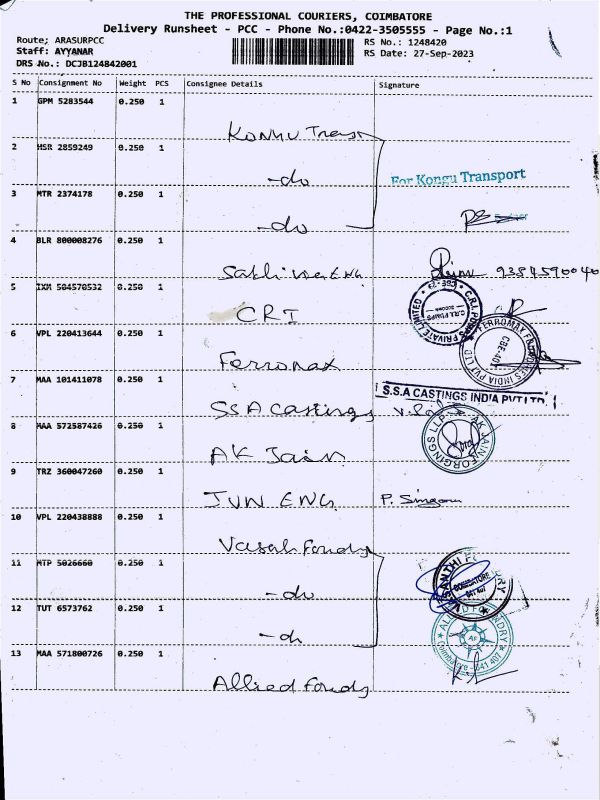 THE PROFESSIONAL COURIERS, COIMBATORE
Delivery Runsheet - PCC - Phone No.:0422-3505555 - Page No.:1
Route; ARASURPCC
RS No.: 1248420
Staff: AYYANAR
RS Date: 27-Sep-2023
DRS No.: DCJB124842001
S No Consignment No Weight PCS Consignee Details Signature
1 GPM 5283544 0.250 1
Kongu Transp
2 HSR 2859249 0.250 1
-do
For Kongu Transport
3 MTR 2374178 0.250 1
-do
4 BLR 800008276 0.250 1
Sakthi Eng 9384590040
5 IXM 504570532 0.250 1
CRI
C.R.I. PUMPS PRIVATE LIMITED
6 VPL 220413644 0.250 1
Ferromax
FERROMAX INDIA PVT LTD CBE-407
7 MAA 101411078 0.250 1
S.S.A CASTINGS INDIA PVT LTD.
SSA Castings
8 MAA 572587426 0.250 1
AK Jain
AK JAIN FORGINGS LLP
9 TRZ 360047260 0.250 1
JVN ENG P. Singam
10 VPL 220438888 0.250 1
Vasanth Foundry
11 MTP 5026660 0.250 1
-do
VASANTHI FOUNDRY COIMBATORE 641 407
12 TUT 6573762 0.250 1
-do
ALLIED FOUNDRY AF Coimbatore - 641 407
13 MAA 571800726 0.250 1
Allied Foundry